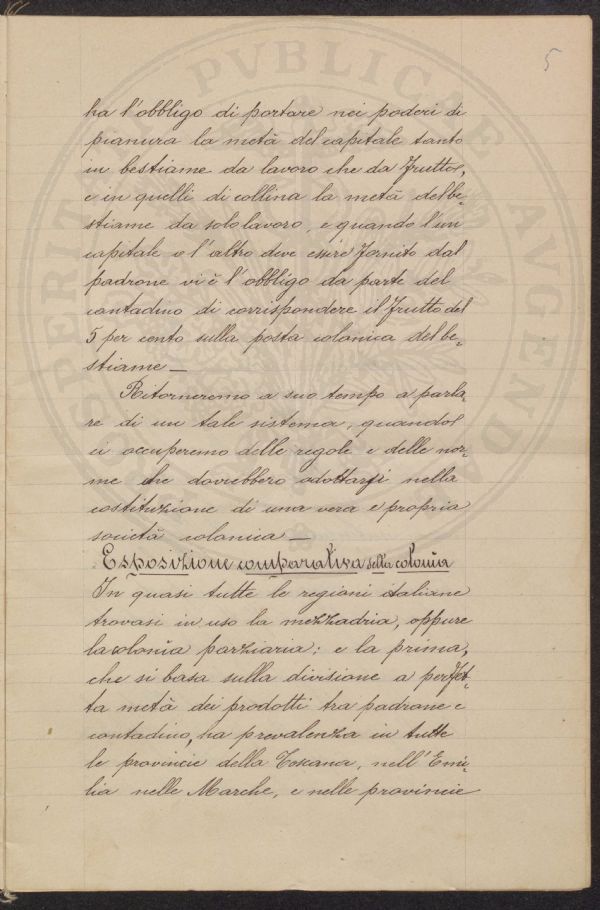 5
ha l'obbligo di portare nei poderi di
pianura la metà del capitale tanto
in bestiame da lavoro che da frutto,
e in quelli di collina la metà del be-
stiame da solo lavoro, e quando l'un
capitale o l'altro deve essere fornito dal
padrone vi è l'obbligo da parte del
contadino di corrispondere il frutto del
5 per cento sulla posta colonica del be-
stiame —
Ritorneremo a suo tempo a parla-
re di un tale sistema, quando
ci occuperemo delle regole e delle nor-
me che dovrebbero adottarsi nella
costituzione di una vera e propria
società colonica —
Esposizione comparativa della colonia
In quasi tutte le regioni italiane
trovasi in uso la mezzadria, oppure
la colonia parziaria; e la prima,
che si basa sulla divisione a perfet-
ta metà dei prodotti tra padrone e
contadino, ha prevalenza in tutte
le provincie della Toscana, nell'Emi-
lia nelle Marche, e nelle provincie
PROSPERITATI PVBLICAE AVGENDAE